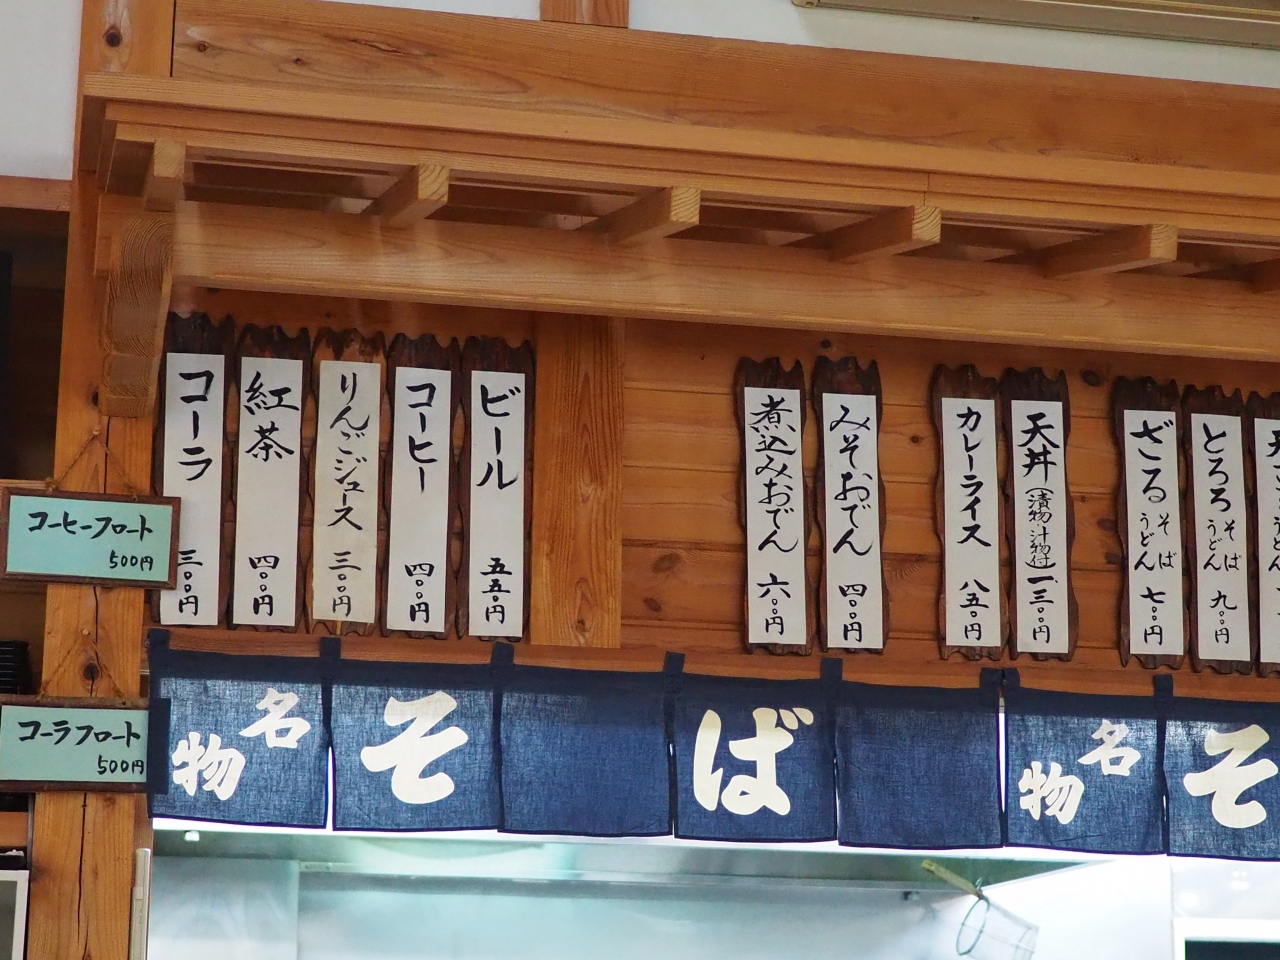 コーラ 三〇〇円
紅茶 四〇〇円
りんごジュース 三〇〇円
コーヒー 四〇〇円
ビール 五五〇円
煮込みおでん 六〇〇円
みそおでん 四〇〇円
カレーライス 八五〇円
天丼(漬物・汁物付) 一、三〇〇円
ざるそばうどん 七〇〇円
とろろそばうどん 九〇〇円
コーヒーフロート
500円
コーラフロート
500円
名物
そば
名物
そ